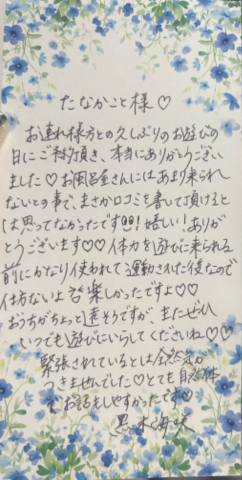 たなかこと様♡
お連れ様方との久しぶりのお遊びの
日にご予約頂き、本当にありがとうござい
ました♡お風呂屋さんにはあまり来られ
ないとの事で、まさか口コミを書いて頂けると
は思ってなかったです!!嬉しい!ありが
とうございます♡♡体力を遊びに来られる
前にかなり使われて運動された後なので
仕方ないよ 楽しかったですよ♡♡
おうちがちょっと遠そうですが、またぜひ
いつでも遊びにいらしてくださいね♡♡
緊張されているとは全然気が
つきませんでした♡とても自然体
でお話もしやすかったです♡